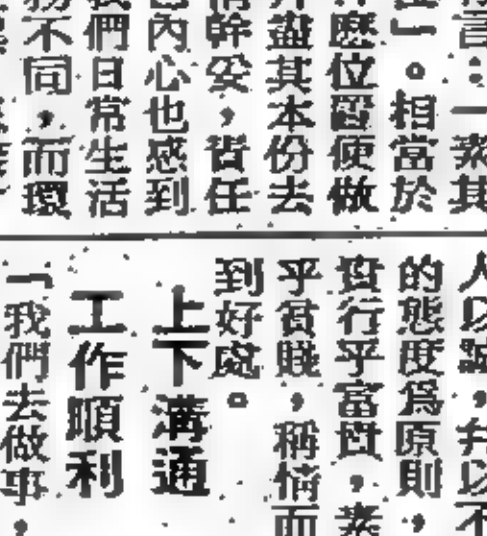 言：「素其
位」。相當於
麼位置便做
盡其本份去
情幹妥，責任
內心也感到
我們日常生活
務不同，而環
人以誠，并以不
的態度為原則，
貴行乎富貴，素
乎貧賤，稱情而
到好處。
上下溝通
工作順利
「我們去做事，